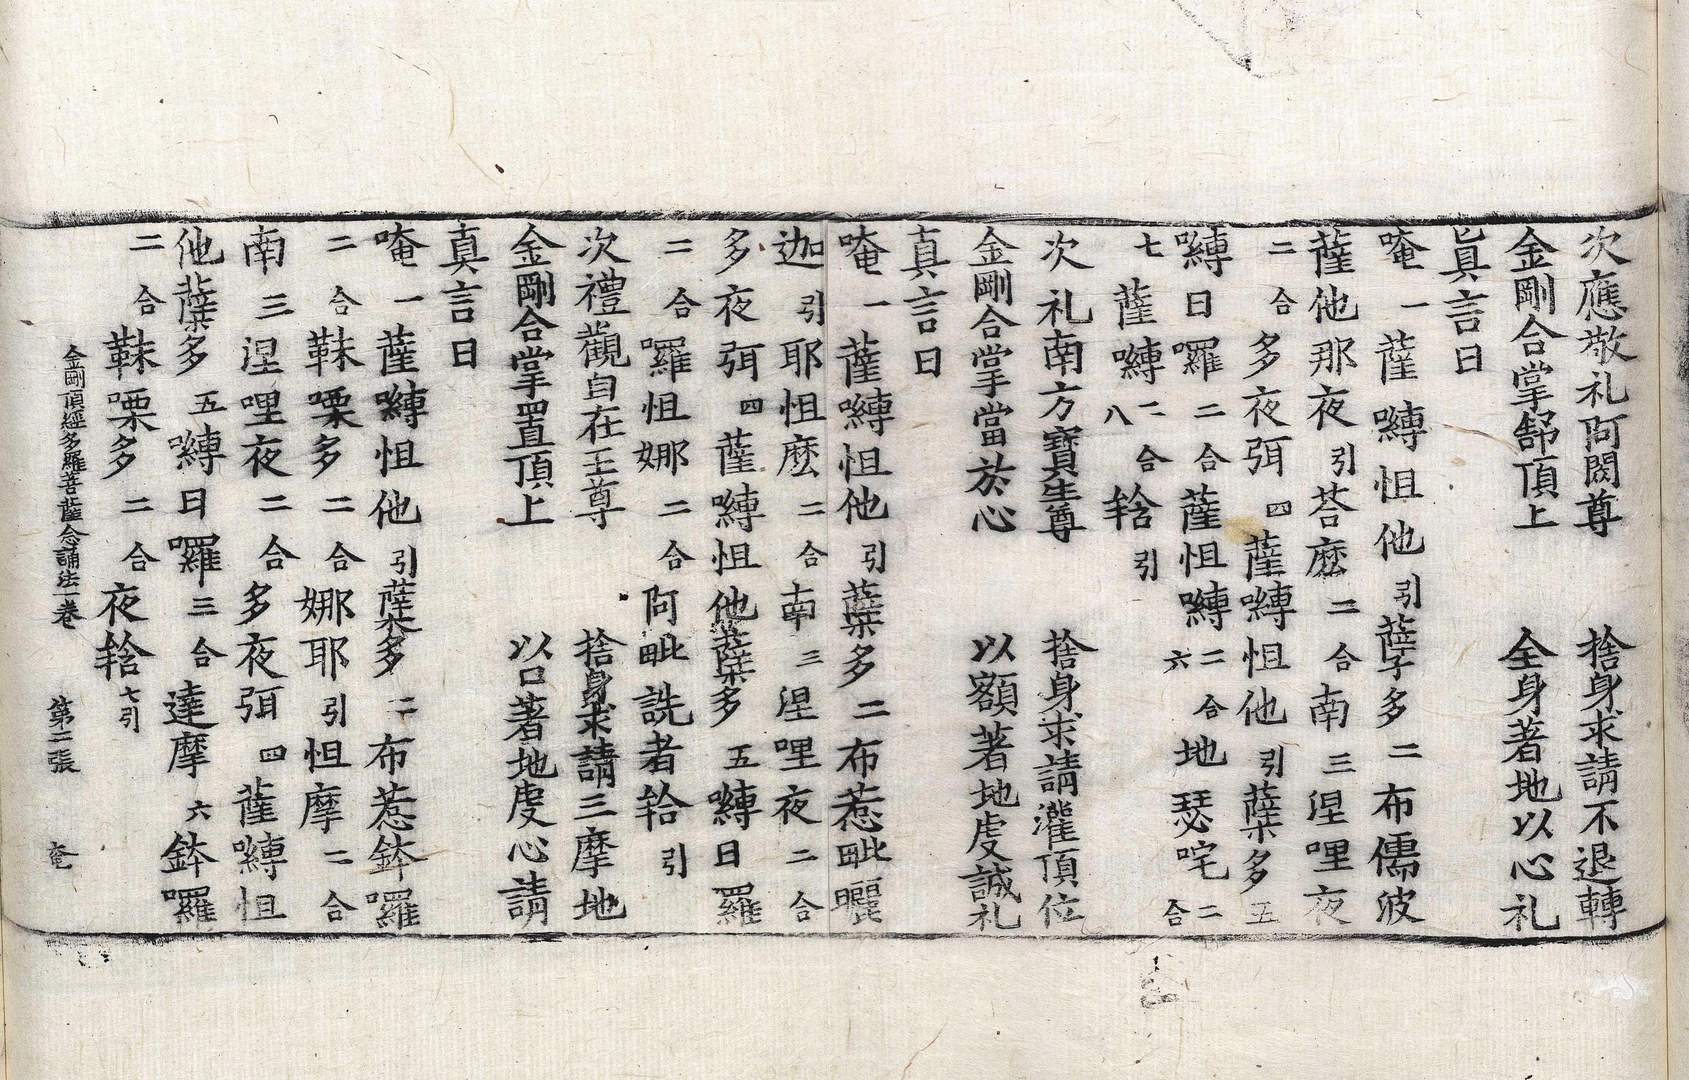 次應敬礼阿閦尊 捨身求請不退轉
金剛合掌舒頂上 全身著地以心礼
真言曰
唵一薩嚩怛他引蘖多二布儒波
薩他那夜引荅麽二合南三涅哩夜
二合多夜弭四薩嚩怛他引蘖多五
嚩日囉二合薩怛嚩二合六地瑟咤二合
七薩嚩二合八𤚥引
次礼南方寶生尊 捨身求請灌頂位
金剛合掌當於心 以額著地虔誠礼
真言曰
唵一薩嚩怛他引蘖多二布惹毗曬
迦引耶怛麽二合南三涅哩夜二合
多夜弭四薩嚩怛他蘖多五嚩日羅
二合囉怛娜二合阿毗詵者𤚥引
次禮觀自在王尊 捨身求請三摩地
金剛合掌置頂上 以口著地虔心請
真言曰
唵一薩嚩怛他引蘖多二布惹鉢囉
二合靺㗚多二合娜耶引怛摩二合
南三涅哩夜二合多夜弭四薩嚩怛
他蘖多五嚩日囉三合達摩六鉢囉
二合靺㗚多二合夜𤚥七引
金剛頂經多羅菩薩念誦法一卷 第二張